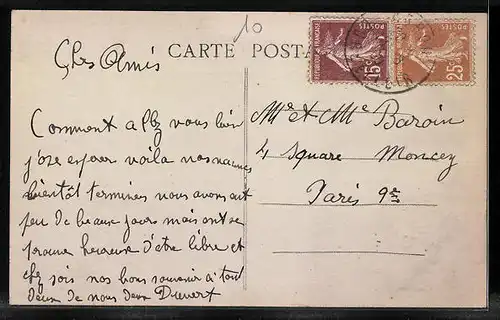 10
CARTE POSTA
REPUBLIQUE FRANÇAISE
POSTES
15c
POSTES
25c
Chers Amis
Comment allez vous bien
j'ose esperer voila nos vacances
bientôt terminées nous avons eut
peu de beaux jours mais ont se
trouve heureux d'être libre et
chez sois nos bons souvenir à tout
deux de nous deux
Mr et Me Baroin
4 Square Moncey
Paris 9e